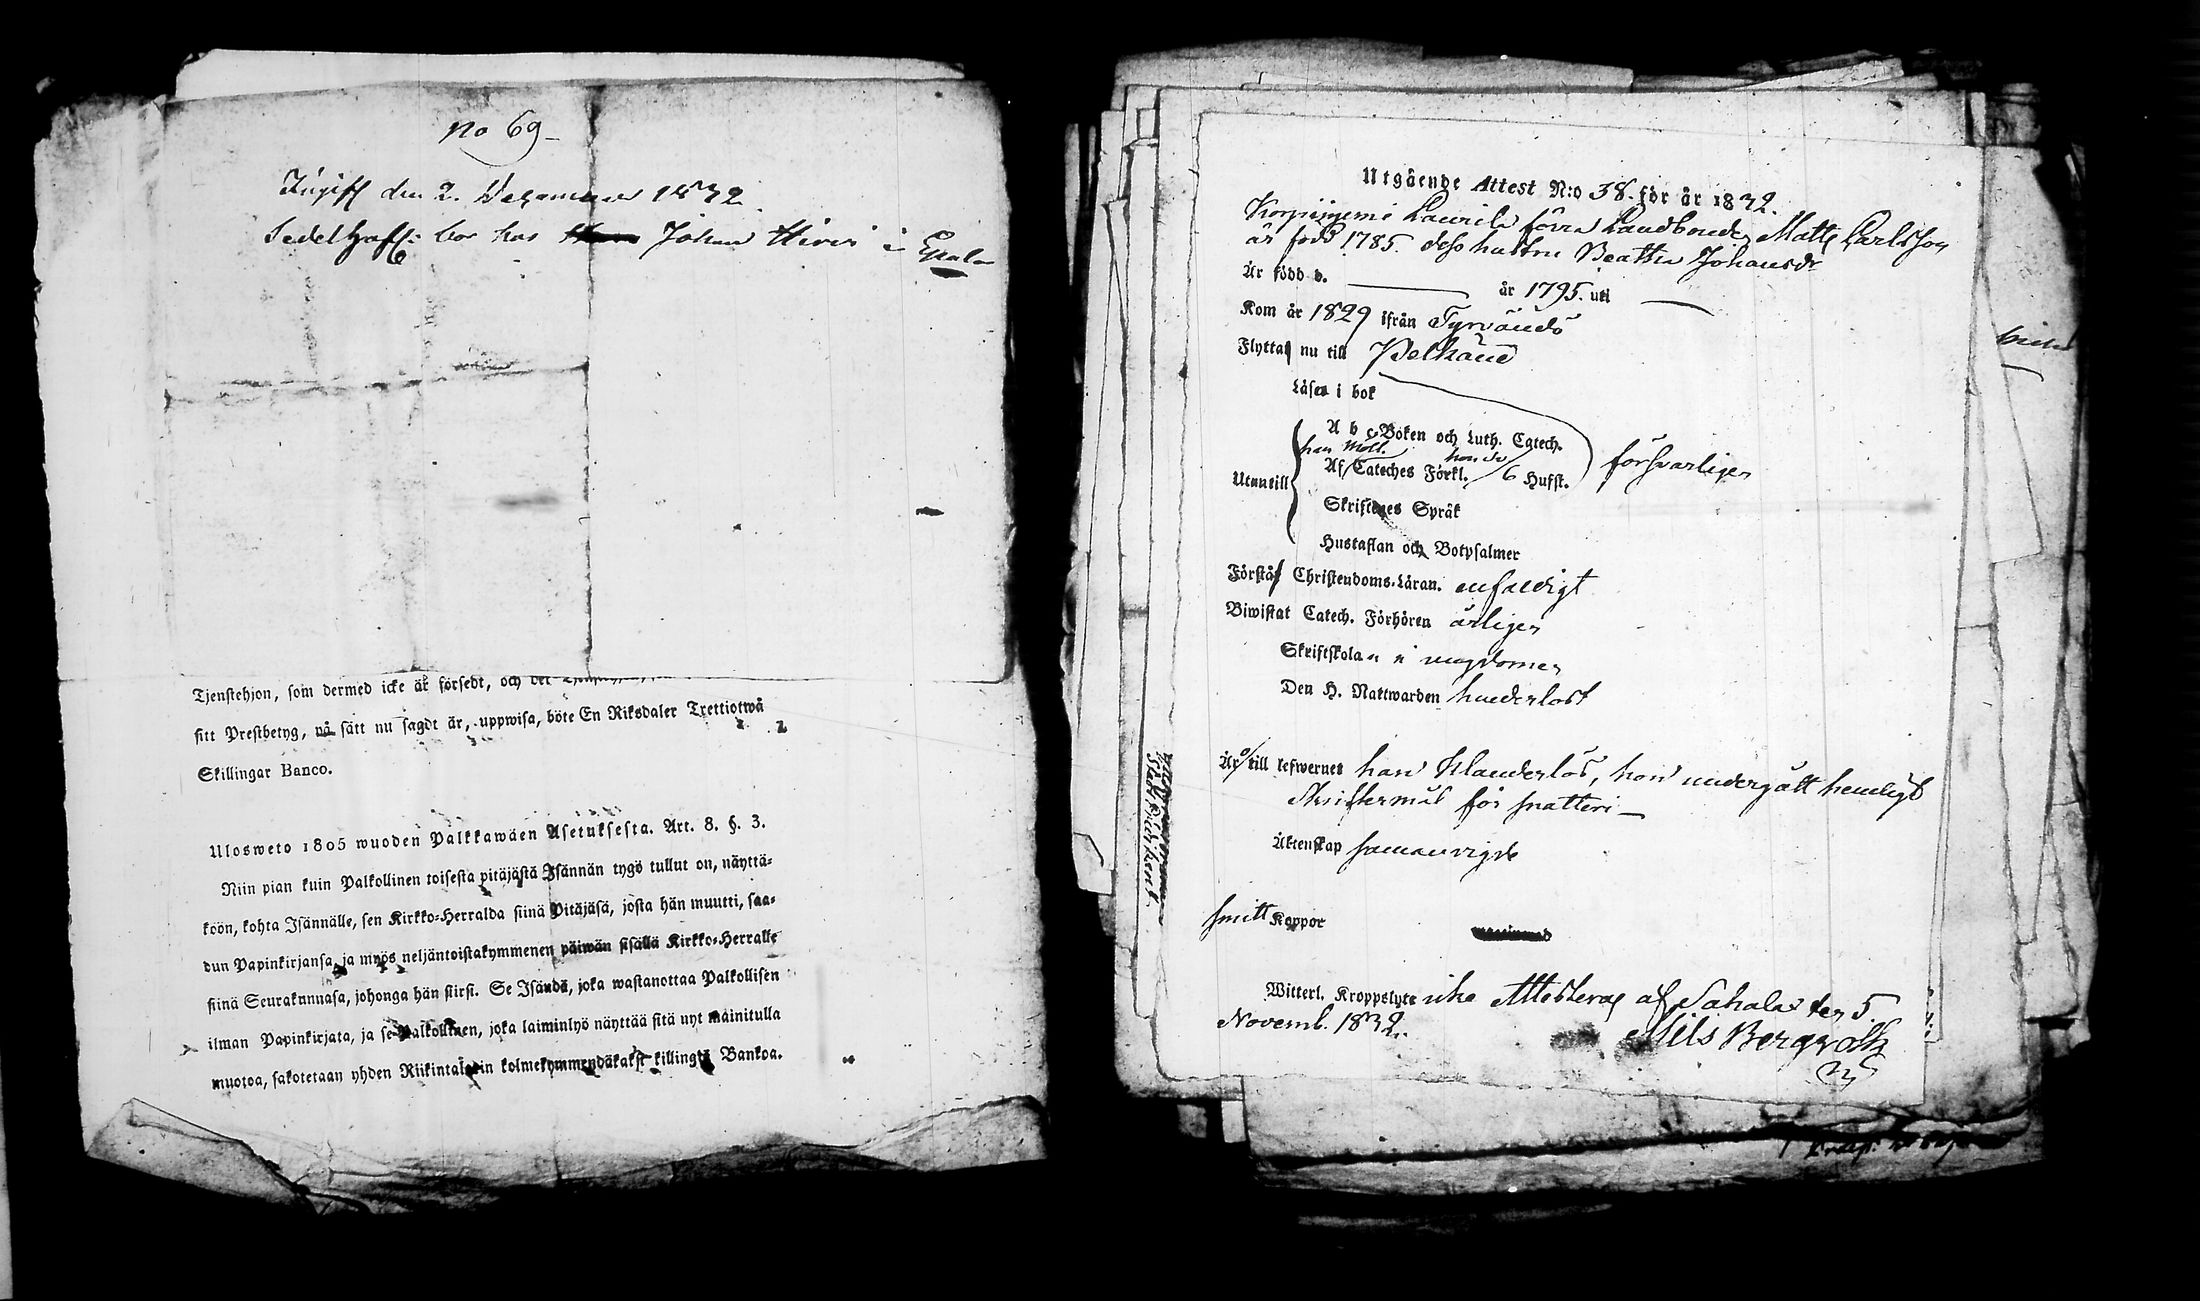 No 69
Ingift den 2. Decemmer 1832
Sedelhafv: bor hos Johan Hirvi i Epala
Tjenstehjon, som dermed icke är försedt, och det
sitt Prestbetyg, på sätt nu sagdt är, uppwisa, böte En Riksdaler Trettiotwå
Skillingar Banco.
Ulosweto 1805 wuoden Palkkawäen Asetuksesta. Art. 8. §. 3.
Niin pian kuin Palkollinen toisesta pitäjästä Isännän tygö tullut on, näyttä-
köön, kohta Isännälle, sen Kirkko-Herralda siinä Pitäjäsä, josta hän muutti, saa-
dun Papinkirjansa, ja myös neljäntoistakymmenen päiwän sisällä Kirkko-Herralle
siinä Seurakunnasa, johonga hän siirsi. Se Isändä, joka wastanottaa Palkollisen
ilman Papinkirjata, ja se Palkollinen, joka laiminlyö näyttää sitä nyt mainitulla
muotoa, sakotetaan yhden Riikintalarin kolmekymmendäkaksi killingiä Bankoa.
Utgående Attest N:o 38. för år 1832.
Korpijgemi Laurila förra Landbonde, Matts Carlsson
är född 1785. dess hustru Beatha Johansdr
Är född d. år 1795. uti
Kom år 1829 ifrån Tyrvändö
Flyttas nu till Pelkäne
Läser i bok
A b c-Boken och Luth. Catech.
han Moll. hon do
Af Cateches Förkl. 6 Hufst.
försvarligen
Utantill
Skriftenes Språk
Hustaflan och Botpsalmer
Förstår Christendoms-Läran. enfaldigt
Biwistat Catech. Förhören årligen
Skriftskolan i ungdomen
Den H. Nattwarden hinderlöst
Är till lefwernet han klanderlös, hon undergått hemligt
Skriftermål för snatteri
Äktenskap samanvigde
haft Koppor
Witterl. Kroppslyte icke Attesterar af Sahalax den 5.
Novemb. 1832.
Nils Bergroth